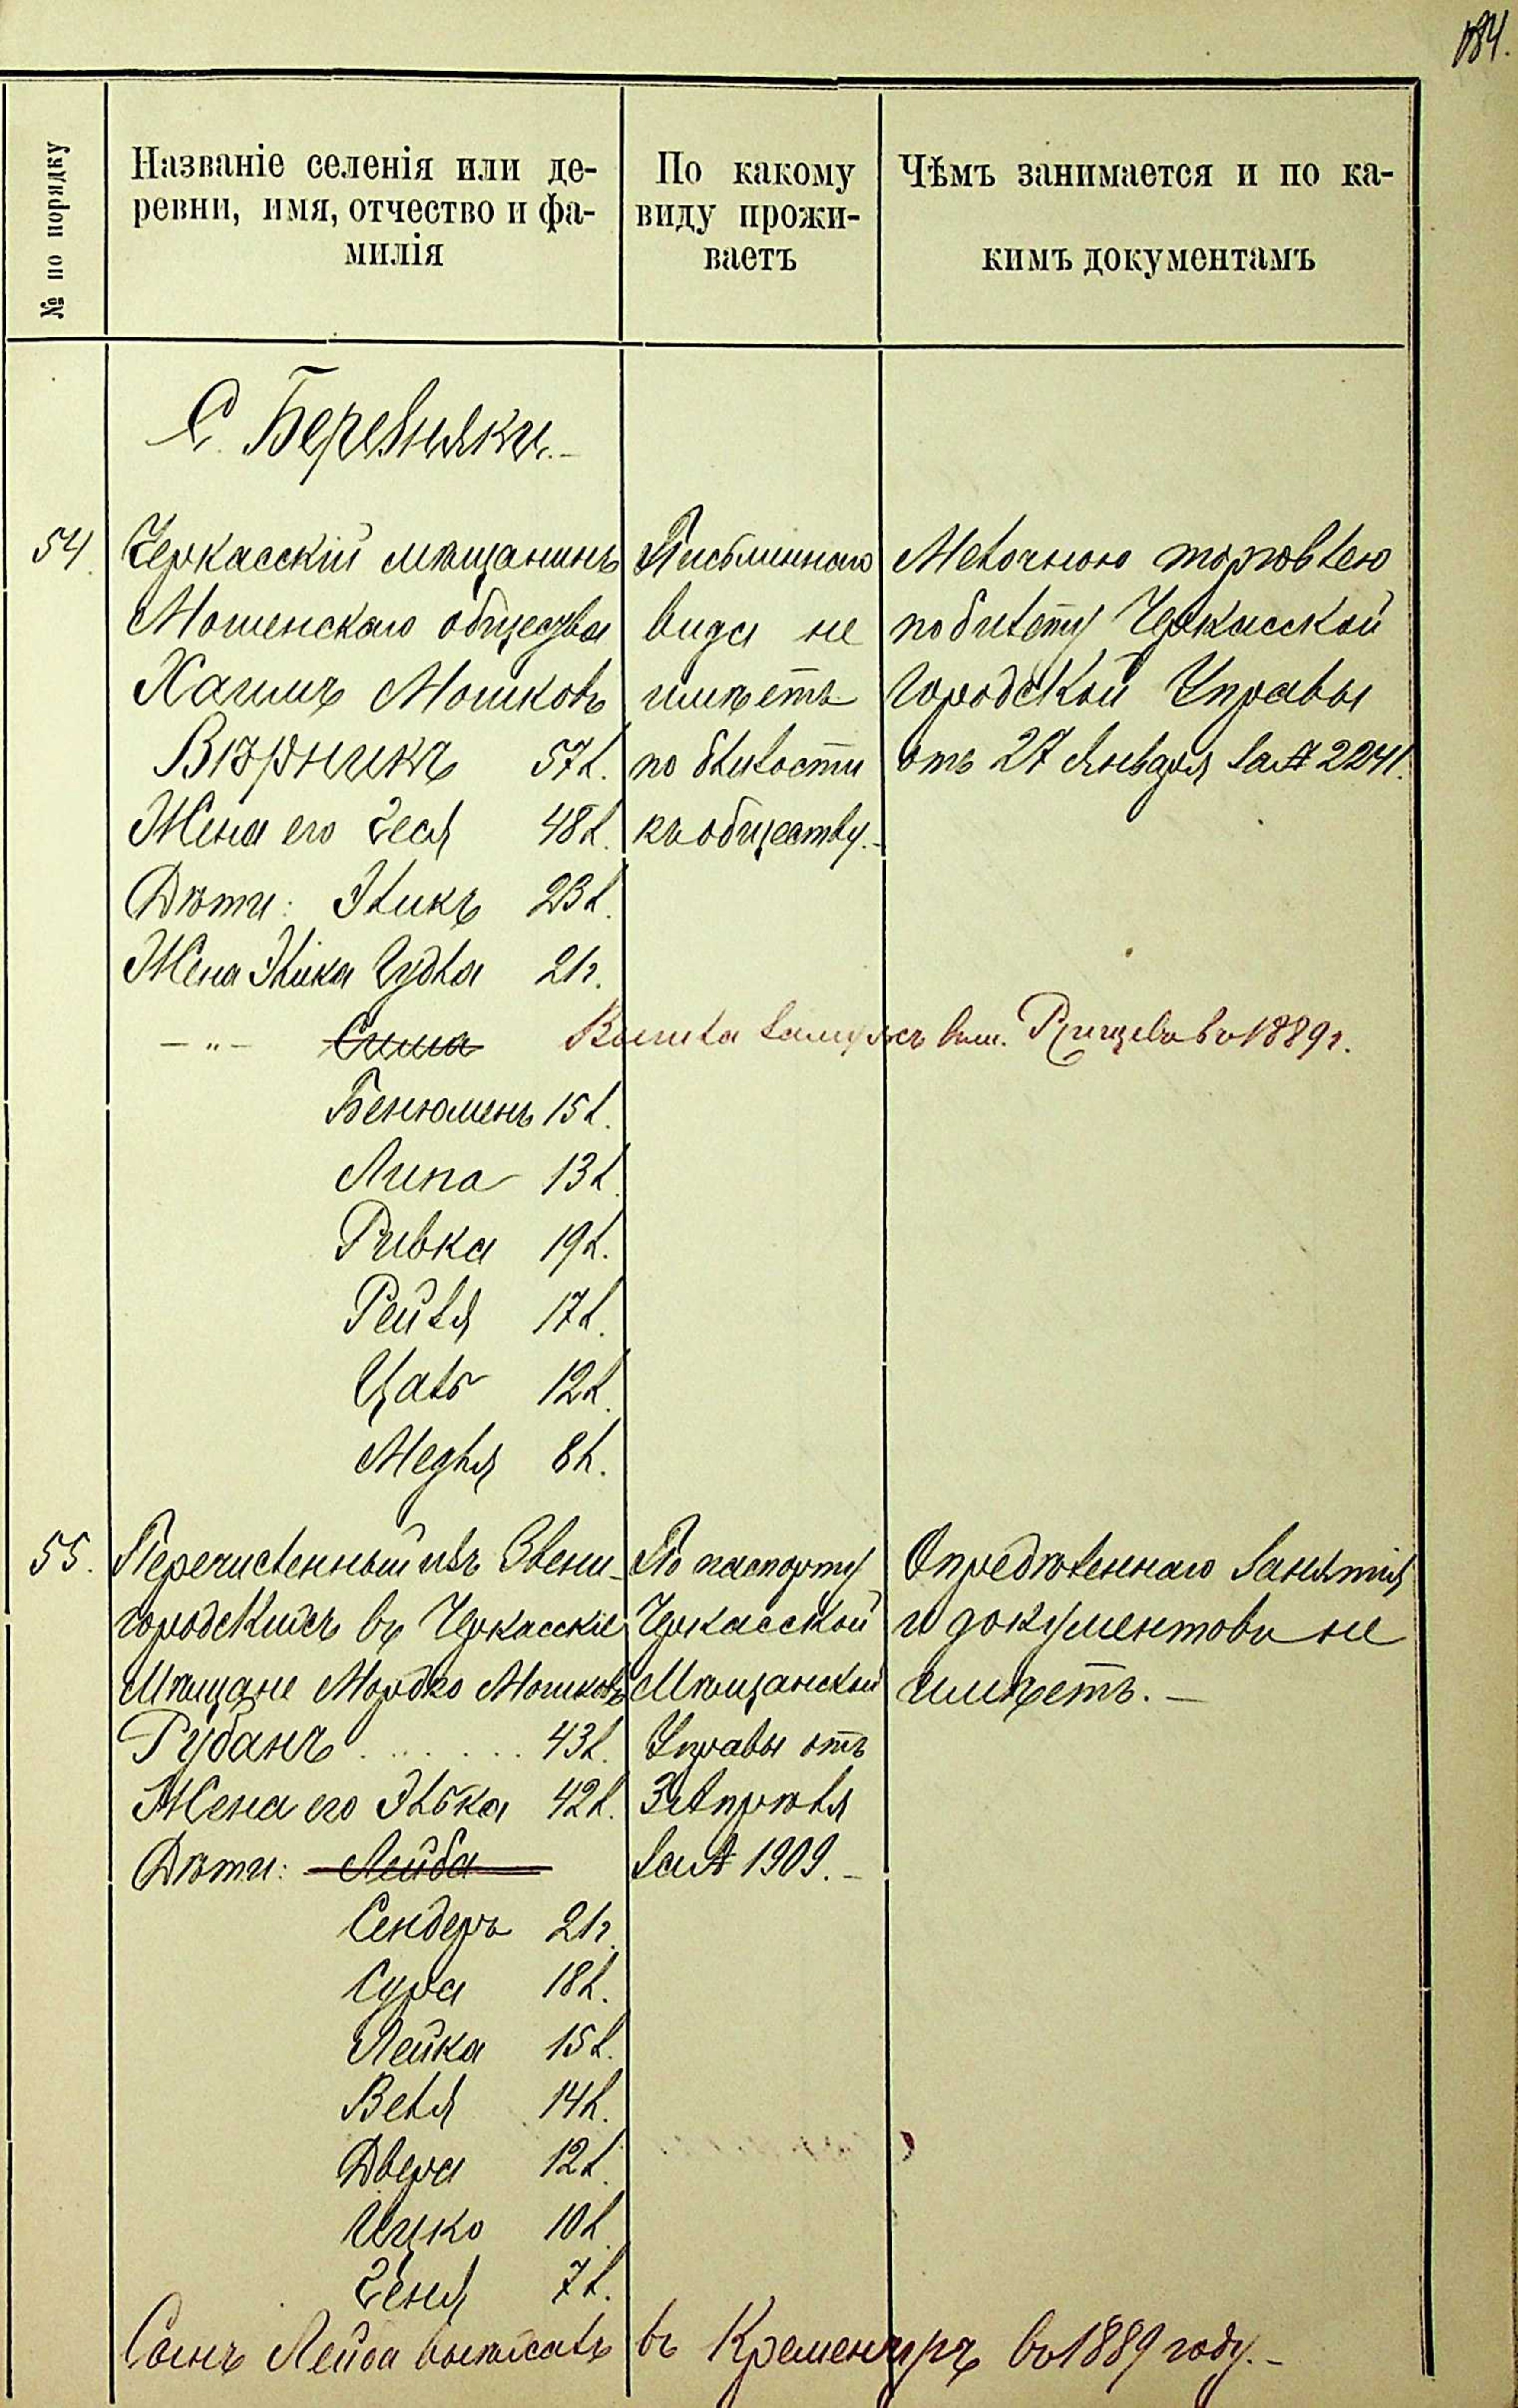 184.
№ по порядку
Названіе селенія или де-
ревни, имя, отчество и фа-
милія
По какому
виду прожи-
ваетъ
Чѣмъ занимается и по ка-
кимъ документамъ
С. Березняки.–
54.
Черкасскій мѣщанинъ
Мошенскаго общества
Хаимъ Мошковъ
Вѣрникъ 57 л.
Жена его Зеся 48 л.
Дѣти: Эликъ 23 л.
Жена Элика Гудля 21 г.
– „ – Сима
Бенюменъ 15 л.
Липа 13 л.
Ривка 19 л.
Рейзя 17 л.
Цаль 12 л.
Медля 8 л.
Письменнаго
вида не
имѣетъ
по близости
къ обществу.–
Мелочною торговлею
по билету Черкасской
Городской Управы
отъ 27 Января за № 2241.
Вышла замужъ въ м. Ржищевъ въ 1889 г.
55.
Перечисленный изъ Звени-
городскихъ въ Черкасскіе
Мѣщане Мордко Мошковъ
Рубанъ . . . . . . 43 л.
Жена его Элька 42 л.
Дѣти: Лейба
Сендеръ 21 г.
Сура 18 л.
Лейка 15 л.
Веля 14 л.
Двера 12 л.
Ицко 10 л.
Зеня 7 л.
По паспорту
Черкасской
Мѣщанской
Управы отъ
3 Апрѣля
за № 1909.–
Опредѣленнаго занятія
и документовъ не
имѣетъ.–
Сынъ Лейба выѣхалъ въ Кременчугъ въ 1889 году.–